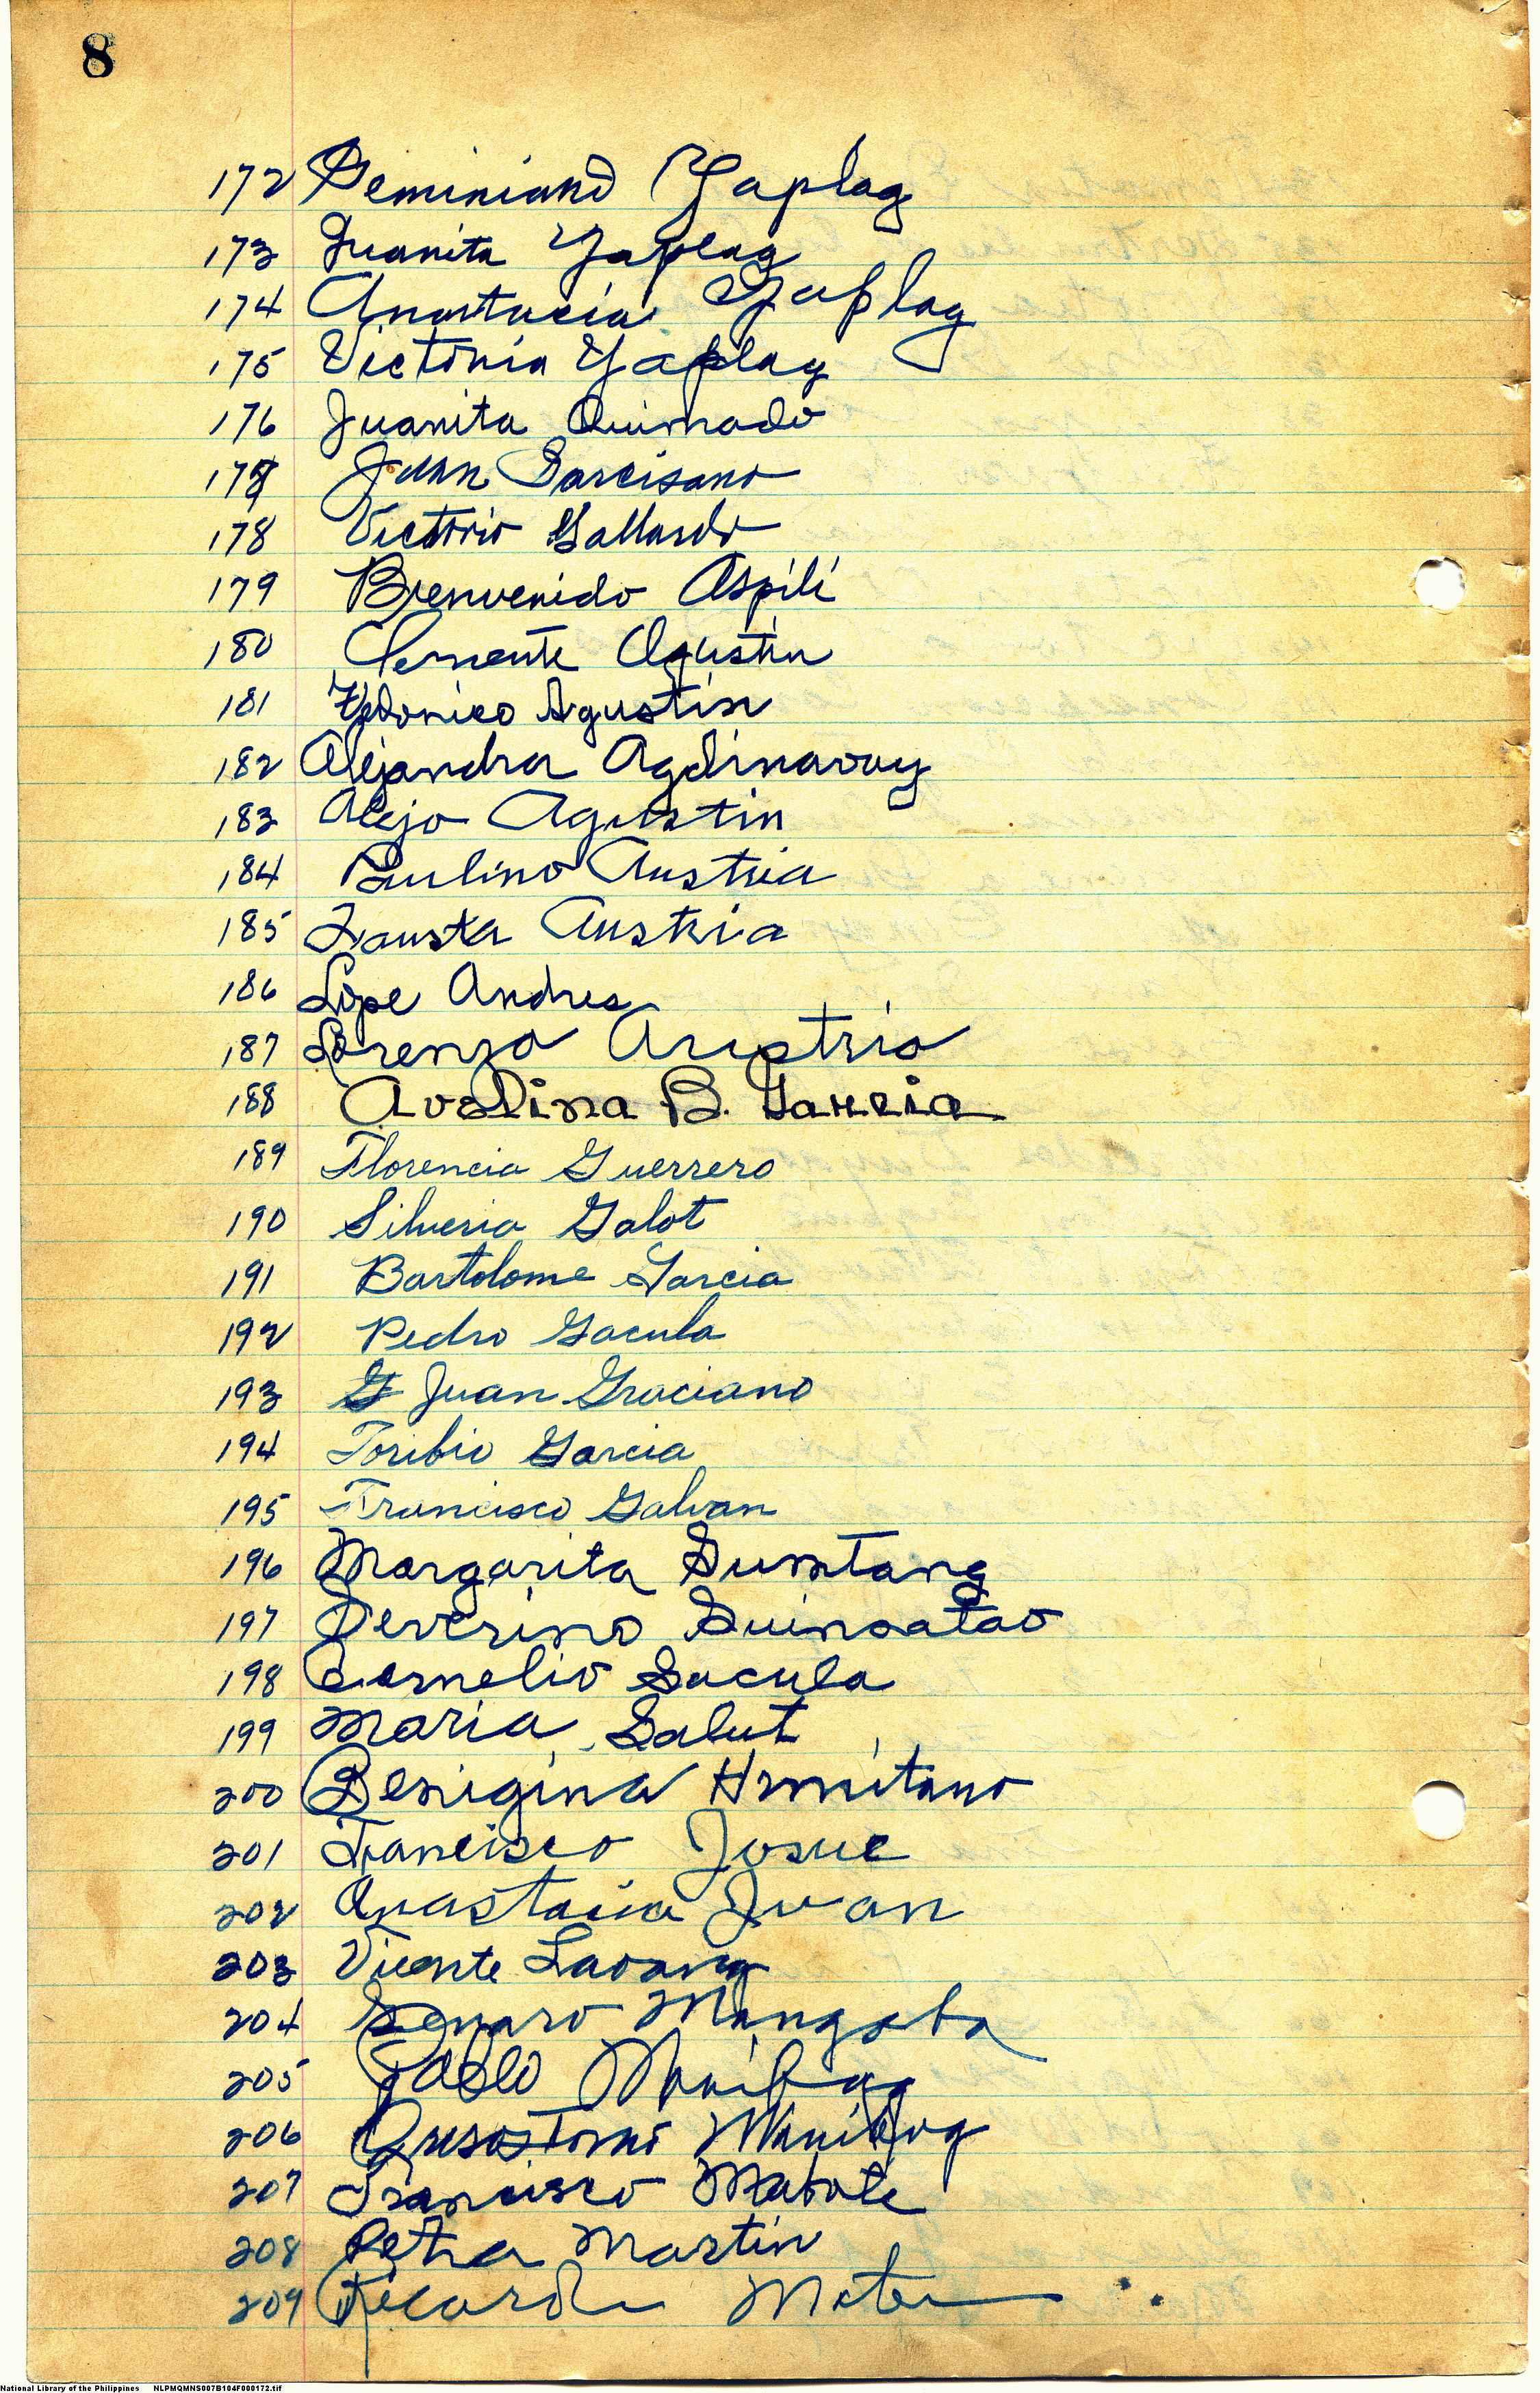 8
172 Geminiano Yaplag
173 Juanita Yaplag
174 Anastacia Yaplag
175 Victoria Yaplag
176 Juanita Quimado
177 Juan Garcisano
178 Victorio Gallardo
179 Bienvenido Aspili
180 Clemente Agustin
181 Agustin
182 Alejandra Agdinaoay
183 Alejo Agustin
184 Paulino Austria
185 Fausta Austria
186 Lope Andres
187 Lorenzo Austria
188 Avelina B. Garcia
189 Florencia Guerrero
190 Silveria Galot
191 Bartolome Garcia
192 Pedro Gacula
193 Juan Graciano
194 Toribio Garcia
195 Francisco Galvan
196 Margarita Gumtang
197 Severino Guinoatao
198 Cornelio Gacula
199 Maria Galut
200 Benigina Hrmitano
201 Francisco Josue
202 Anastacia Juan
203 Vicente Laoang
204 Genaro Mangoba
205 Pablo Manibog
206 Manibog
207 Francisco Mabute
208 Petra Martin
209 Ricardo
National Library of the Philippines NLPMQMNS007B104F000172.tif